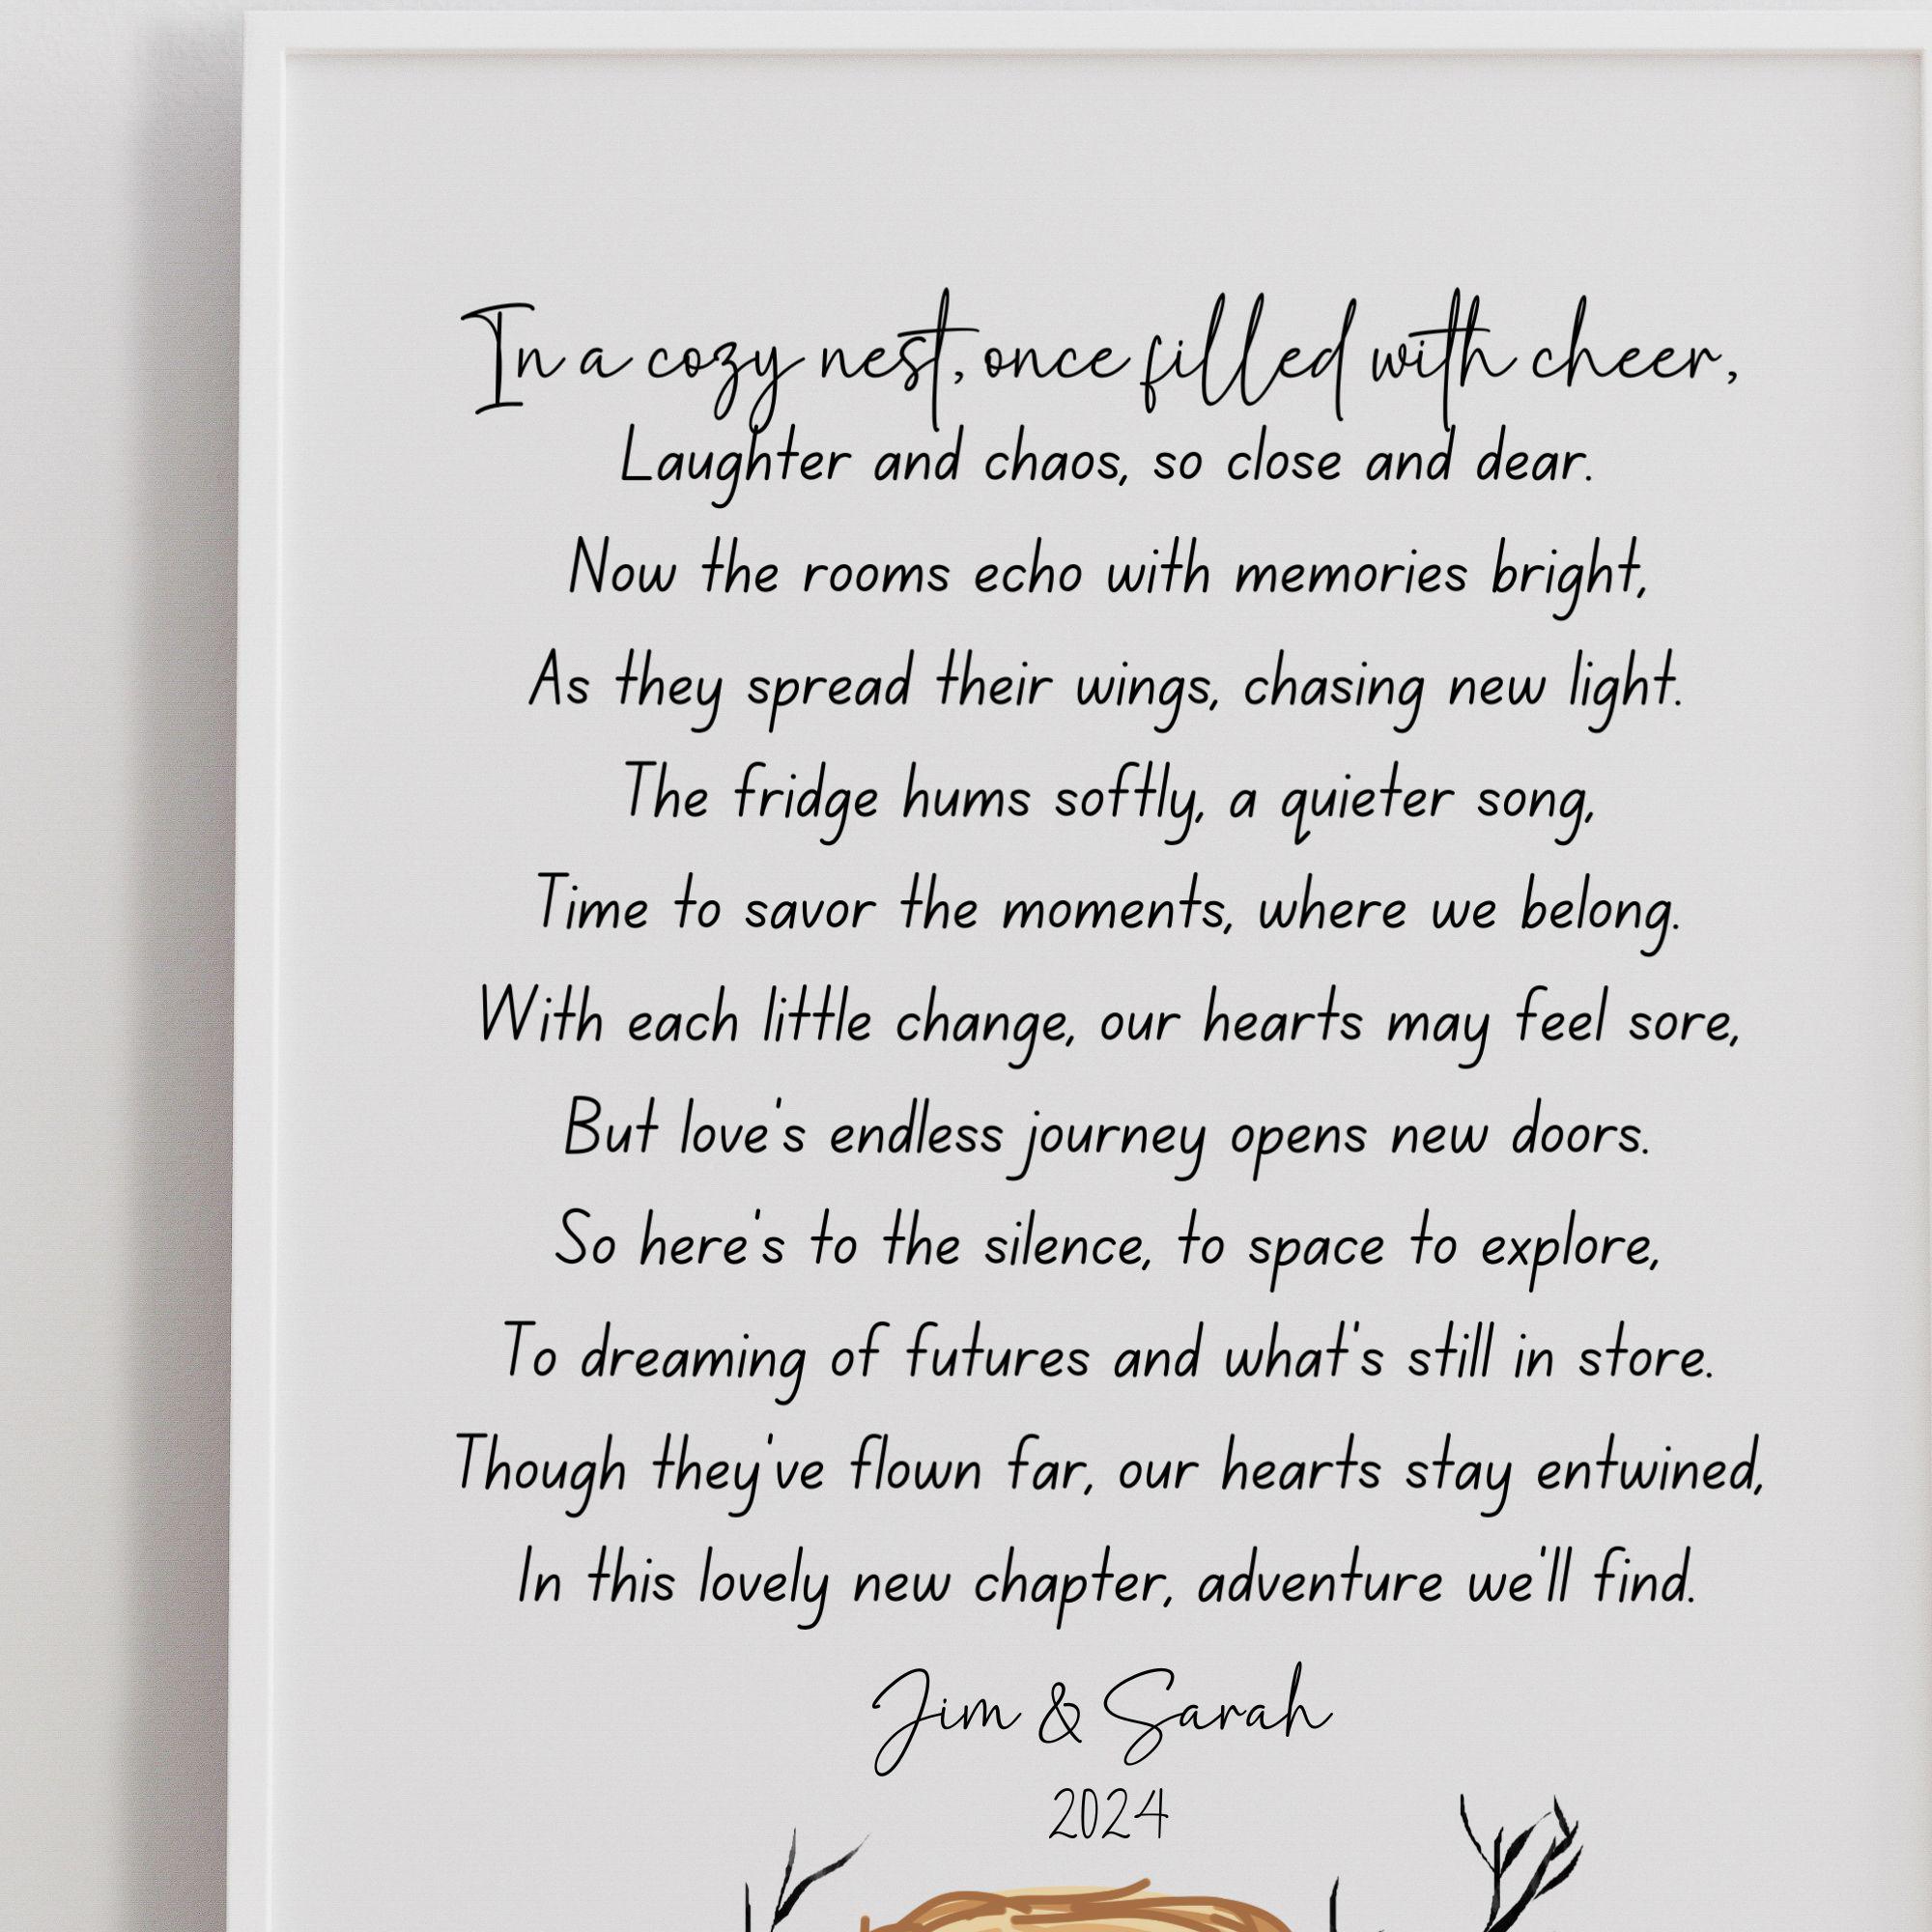 In a cozy nest, once filled with cheer,
Laughter and chaos, so close and dear.
Now the rooms echo with memories bright,
As they spread their wings, chasing new light.
The fridge hums softly, a quieter song,
Time to savor the moments, where we belong.
With each little change, our hearts may feel sore,
But love's endless journey opens new doors.
So here's to the silence, to space to explore,
To dreaming of futures and what's still in store.
Though they've flown far, our hearts stay entwined,
In this lovely new chapter, adventure we'll find.
Jim & Sarah
2024